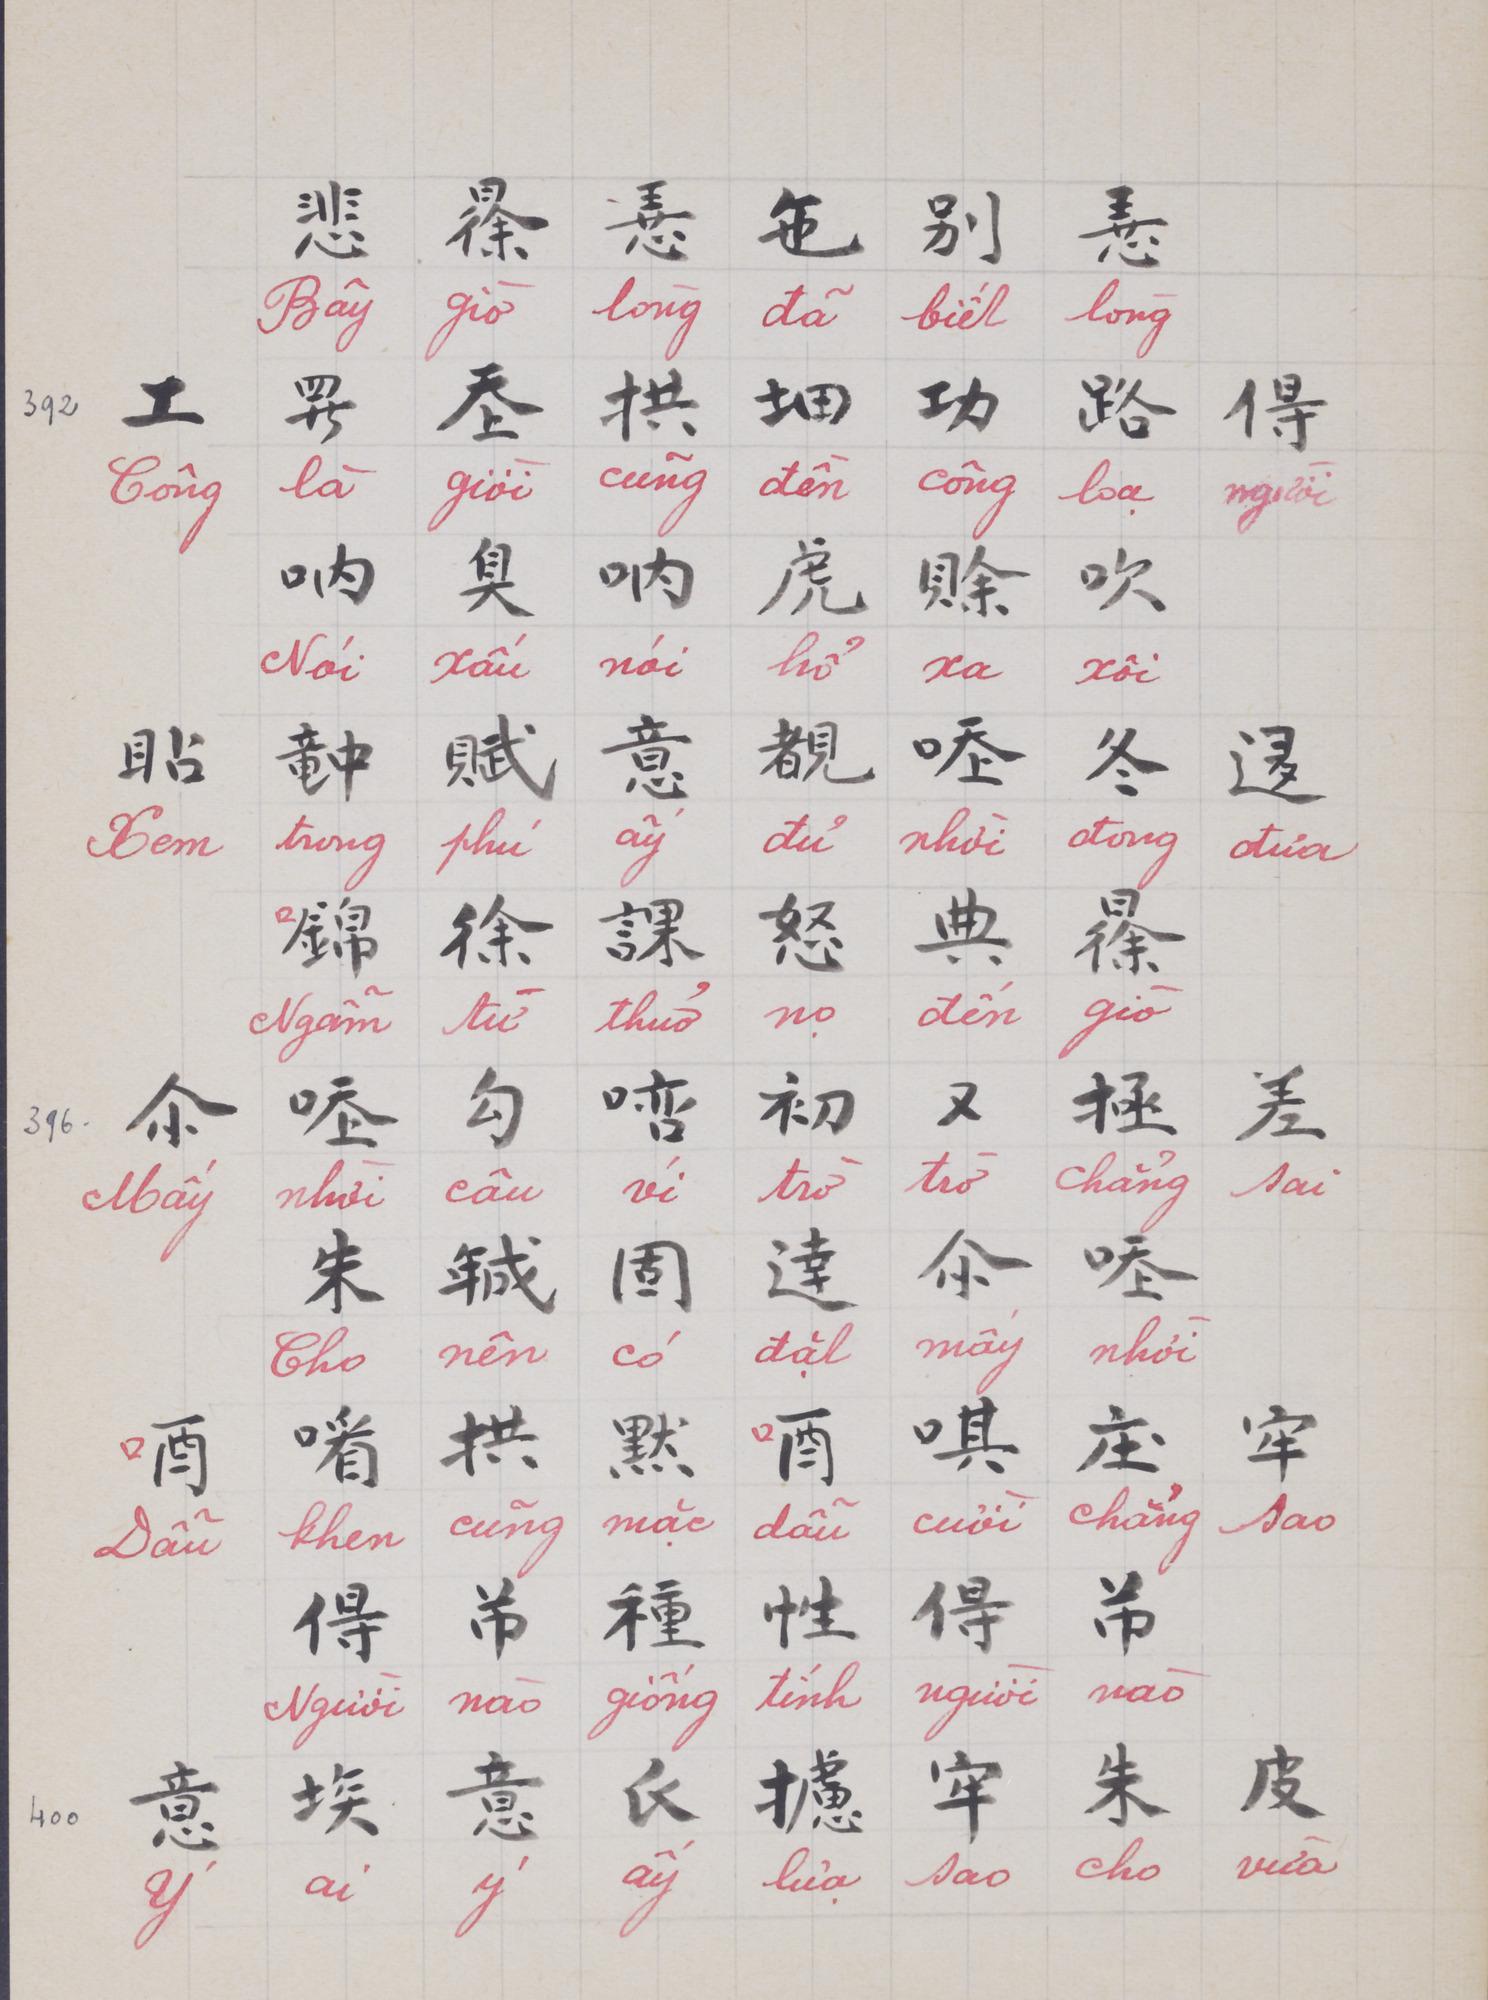 悲 𣇞 𢚸 㐌 别 𢚸
Bây giờ lòng đã biết lòng
392 工 𱺵 𡗶 拱 𡑲 功 路 得
Công là giời cũng đền công loạ người
吶 臭 吶 虎 賒 吹
Nói xấu nói hổ xa xôi
䀡 𥪝 賦 意 覩 𠳒 冬
Xem trong phú ấy đủ nhời đong đưa
錦 徐 課 怒 典 𣇞
Ngẫm từ thuở nọ đến giờ
396. 尒 𠳒 勾 㗰 初 又 拯 差
Mấy nhời câu ví trờ trờ chẳng sai
朱 𢧚 固 達 尒 𠳒
Cho nên có đặt mấy nhời
唒 㗂 拱 默 唒 唭 庄 牢
Dẫu khen cũng mặc dẫu cười chẳng sao
得 吊 種 性 得 吊
Người nào giống tính người nào
400 意 埃 意 氏 攄 牢 朱 皮
Ý ai ý ấy lựa sao cho vừa